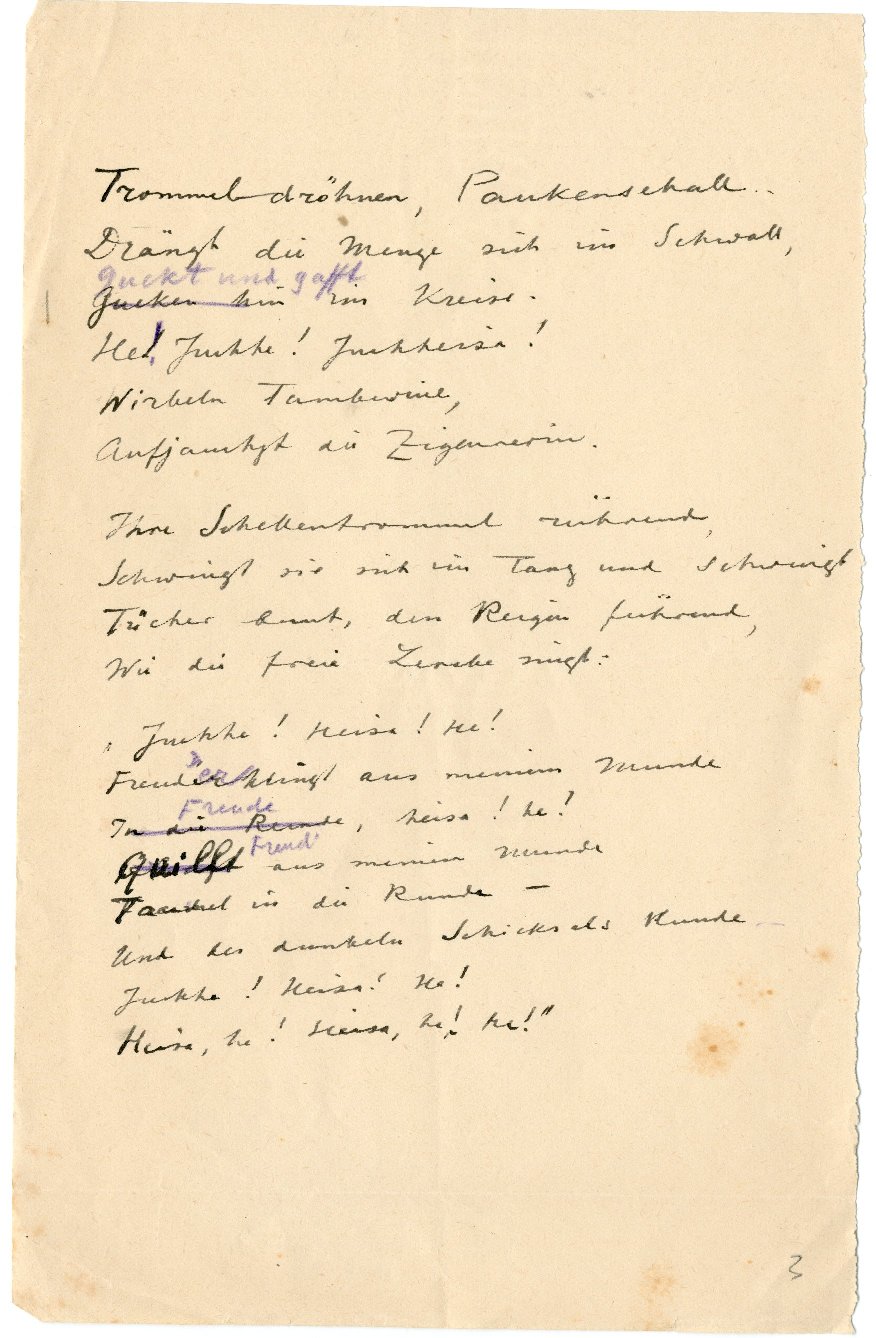 Trommeldröhnen, Paukenschall..
Drängt die Menge sich im Schwall,
guckt und gafft
Gucken hin im Kreise.
He! Juchhe! Juchheisa!
Wirbeln Tamburine,
Aufjauchzt die Zigeunerin.
Ihre Schellentrommel rührend,
Schwingt sie sich im Tanz und schwingt
Tücher bunt, den Reigen führend,
Wie die freie Lerche singt:
„Juchhe! Heisa! He!
Freude klingt aus meinem Munde
Freude
In die Runde, heisa! he!
Freud'
Quillt aus meinem Munde
Taumel in die Runde –
Und des dunkeln Schicksals Kunde
Juchhe! Heisa! He!
Heisa, he! Heisa, he! He!"
3